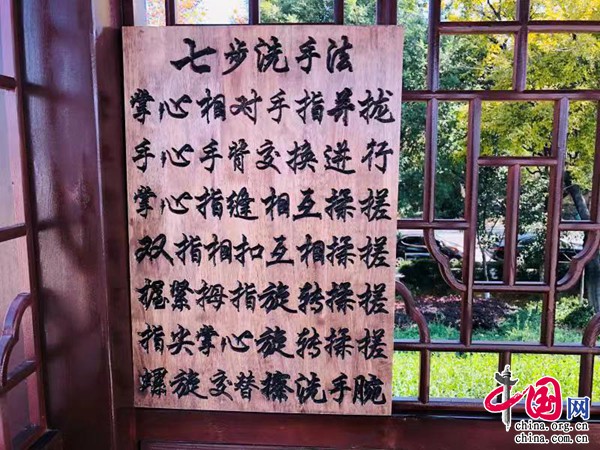 七步洗手法
掌心相对手指并拢
手心手背交换进行
掌心指缝相互揉搓
双指相扣互相揉搓
握紧拇指旋转揉搓
指尖掌心旋转揉搓
螺旋交替擦洗手腕
中国网
china.org.cn
china.com.cn